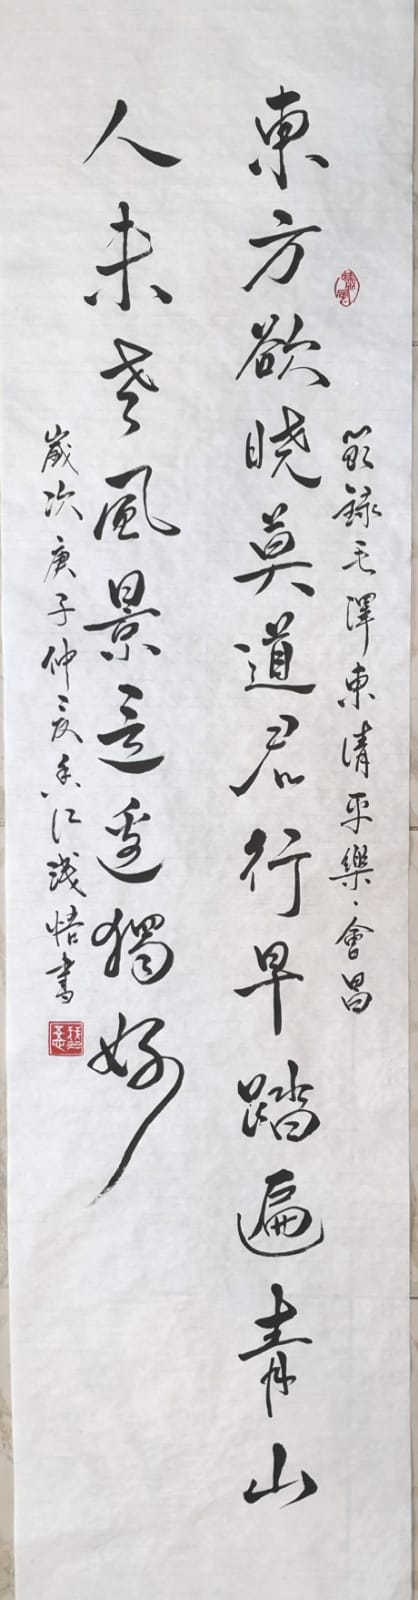 節録毛澤東清平樂·會昌
東方欲晓莫道君行早踏遍青山
人未老風景這邊獨好
歲次庚子仲夏香江淺悟書